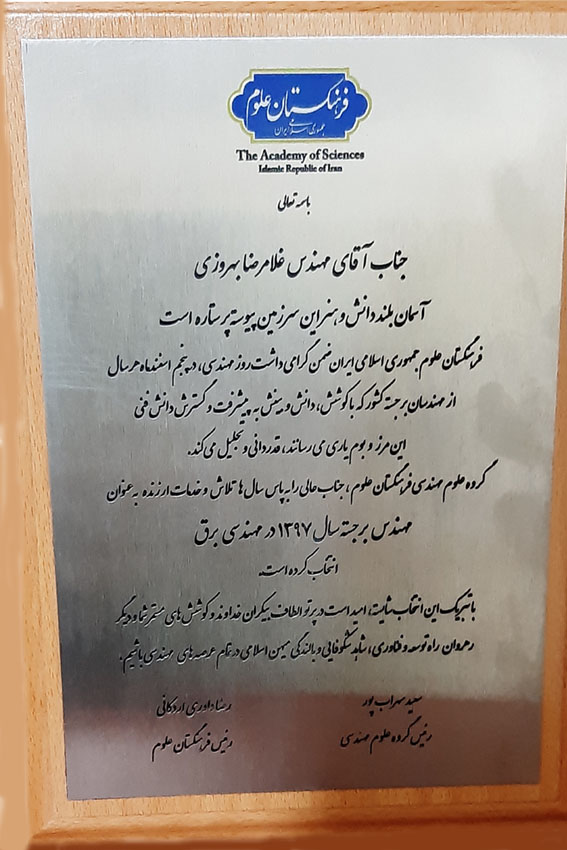 فرهنگستان علوم
جمهوری اسلامی ایران
The Academy of Sciences
Islamic Republic of Iran
باسمه تعالی
جناب آقای مهندس غلامرضا بهروزی
آسمان بلند دانش و هنر این سرزمین پیوسته پر ستاره است
فرهنگستان علوم جمهوری اسلامی ایران ضمن گرامی داشت روز مهندسی، در پنجم اسفندماه هر سال
از مهندسان برجسته کشور که با کوشش، دانش و بینش به پیشرفت و گسترش دانش فنی
این مرز و بوم یاری می رسانند، قدردانی و تجلیل می کند.
گروه علوم مهندسی فرهنگستان علوم، جناب عالی را به پاس سال ها تلاش و خدمات ارزنده به عنوان
مهندس برجسته سال ۱۳۹۷ در مهندسی برق
انتخاب کرده است.
با تبریک این انتخاب شایسته، امید است در پرتو الطاف بیکران خداوند و کوشش های مستمر شما و دیگر
رهروان راه توسعه و فناوری، شاهد شکوفایی و بالندگی میهن اسلامی در تمام عرصه های مهندسی باشیم.
سعید سهراب پور
رئیس گروه علوم مهندسی
رضا داوری اردکانی
رئیس فرهنگستان علوم